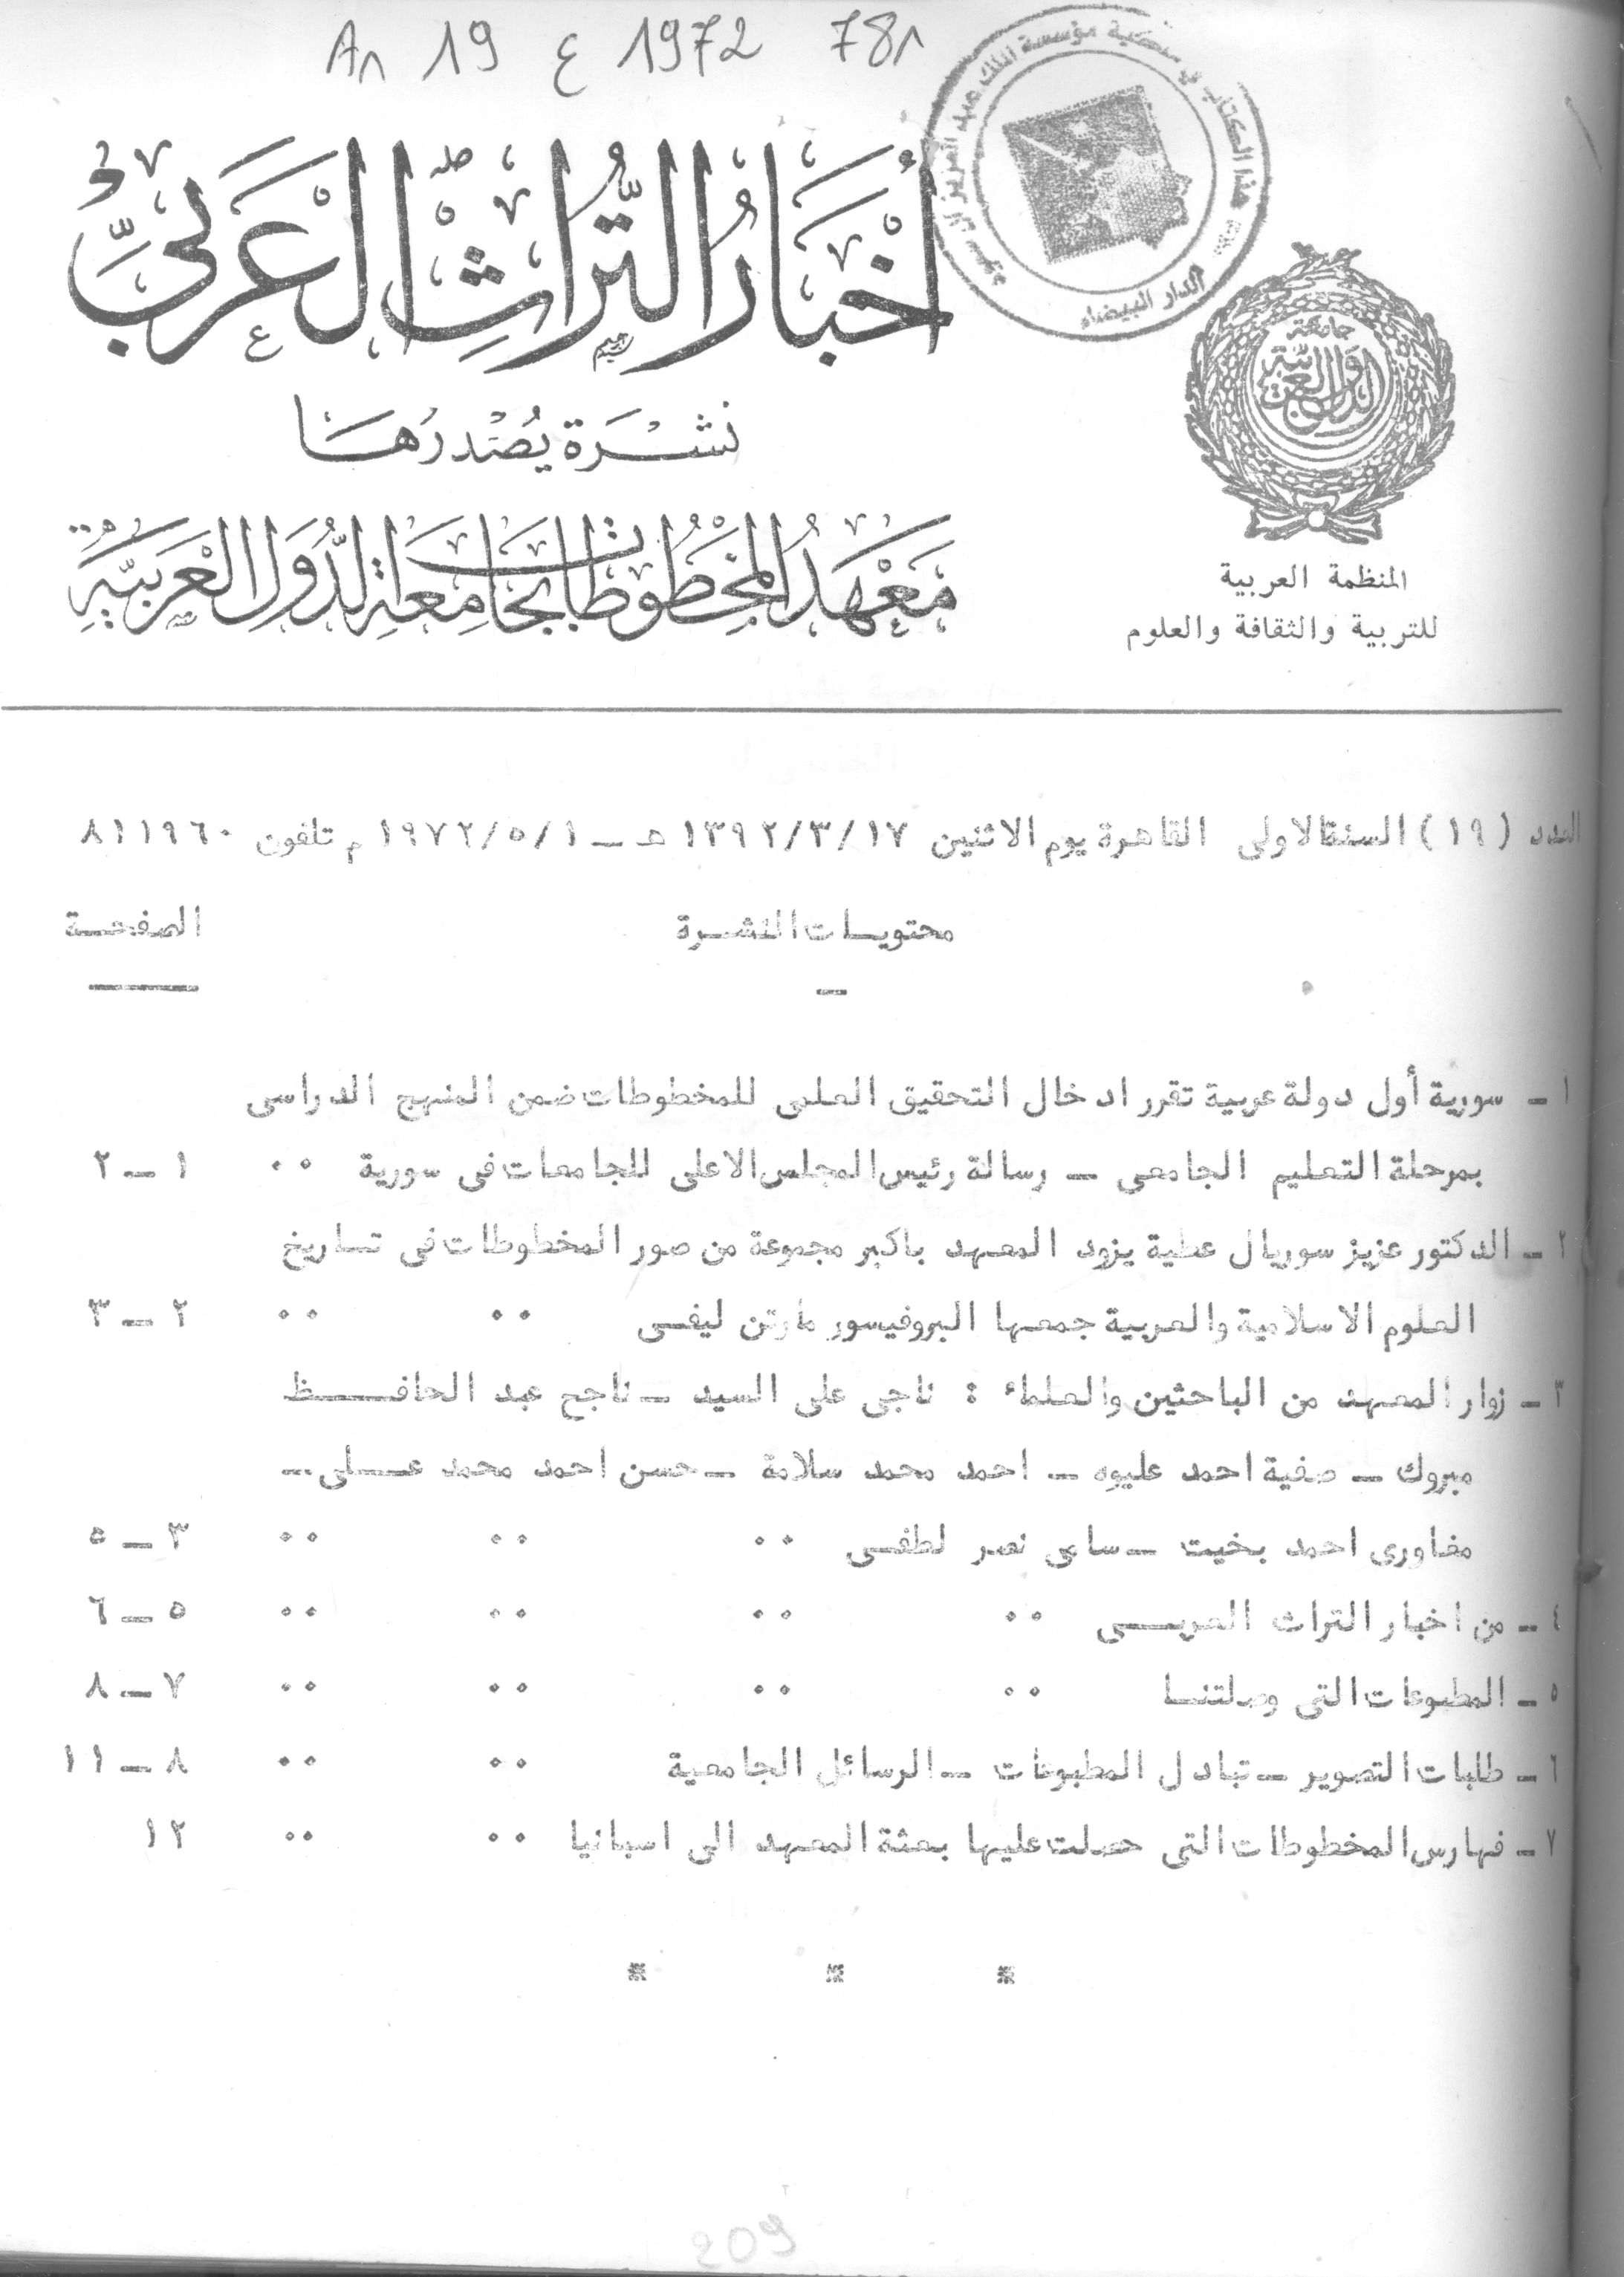 An 19 ع 1972 78n
هذا الكتاب مؤسسة الملك عبد العزيز آل سعود
الدار البيضاء
أخبار التراث العربي
نشرة يصدرها
معهد المخطوطات بجامعة الدول العربية
جامعة
الدول العربية
المنظمة العربية
للتربية والثقافة والعلوم
العدد (١٩) السنة الاولى القاهرة يوم الاثنين ١٣٩٢/٣/١٧ هـ ــ ١٩٧٢/٥/١ م تلفون ٨١١٩٦٠
محتويــات النشــرة الصفحــة
١ ــ سورية أول دولة عربية تقرر ادخال التحقيق العلمى للمخطوطات ضمن المنهج الدراسى
بمرحلة التعليم الجامعى ــ رسالة رئيس المجلس الاعلى للجامعات فى سورية ٠٠ ١ ــ ٢
٢ ــ الدكتور عزيز سوريال عطية يزود المعهد باكبر مجموعة من صور المخطوطات فى تــاريخ
العلوم الاسلامية والعربية جمعها البروفيسور مارتن ليفــى ٠٠ ٠٠ ٢ ــ ٣
٣ ــ زوار المعهد من الباحثين والعلماء : ناجى على السيد ــ ناجح عبد الحافــــظ
مبروك ــ صفية احمد عليوه ــ احمد محمد سلامة ــ حسن احمد محمد عــلى ــ
مغاورى احمد بخيت ــ سامى نصر لطفــى ٠٠ ٠٠ ٠٠ ٣ ــ ٥
٤ ــ من اخبار التراث العربــى ٠٠ ٠٠ ٠٠ ٠٠ ٥ ــ ٦
٥ ــ المطبوعات التى وصلتنــا ٠٠ ٠٠ ٠٠ ٠٠ ٧ ــ ٨
٦ ــ طلبات التصوير ــ تبادل المطبوعات ــ الرسائل الجامعية ٠٠ ٠٠ ٨ ــ ١١
٧ ــ فهارس المخطوطات التى حصلت عليها بعثة المعهد الى اسبانيا ٠٠ ٠٠ ١٢
* * *
209